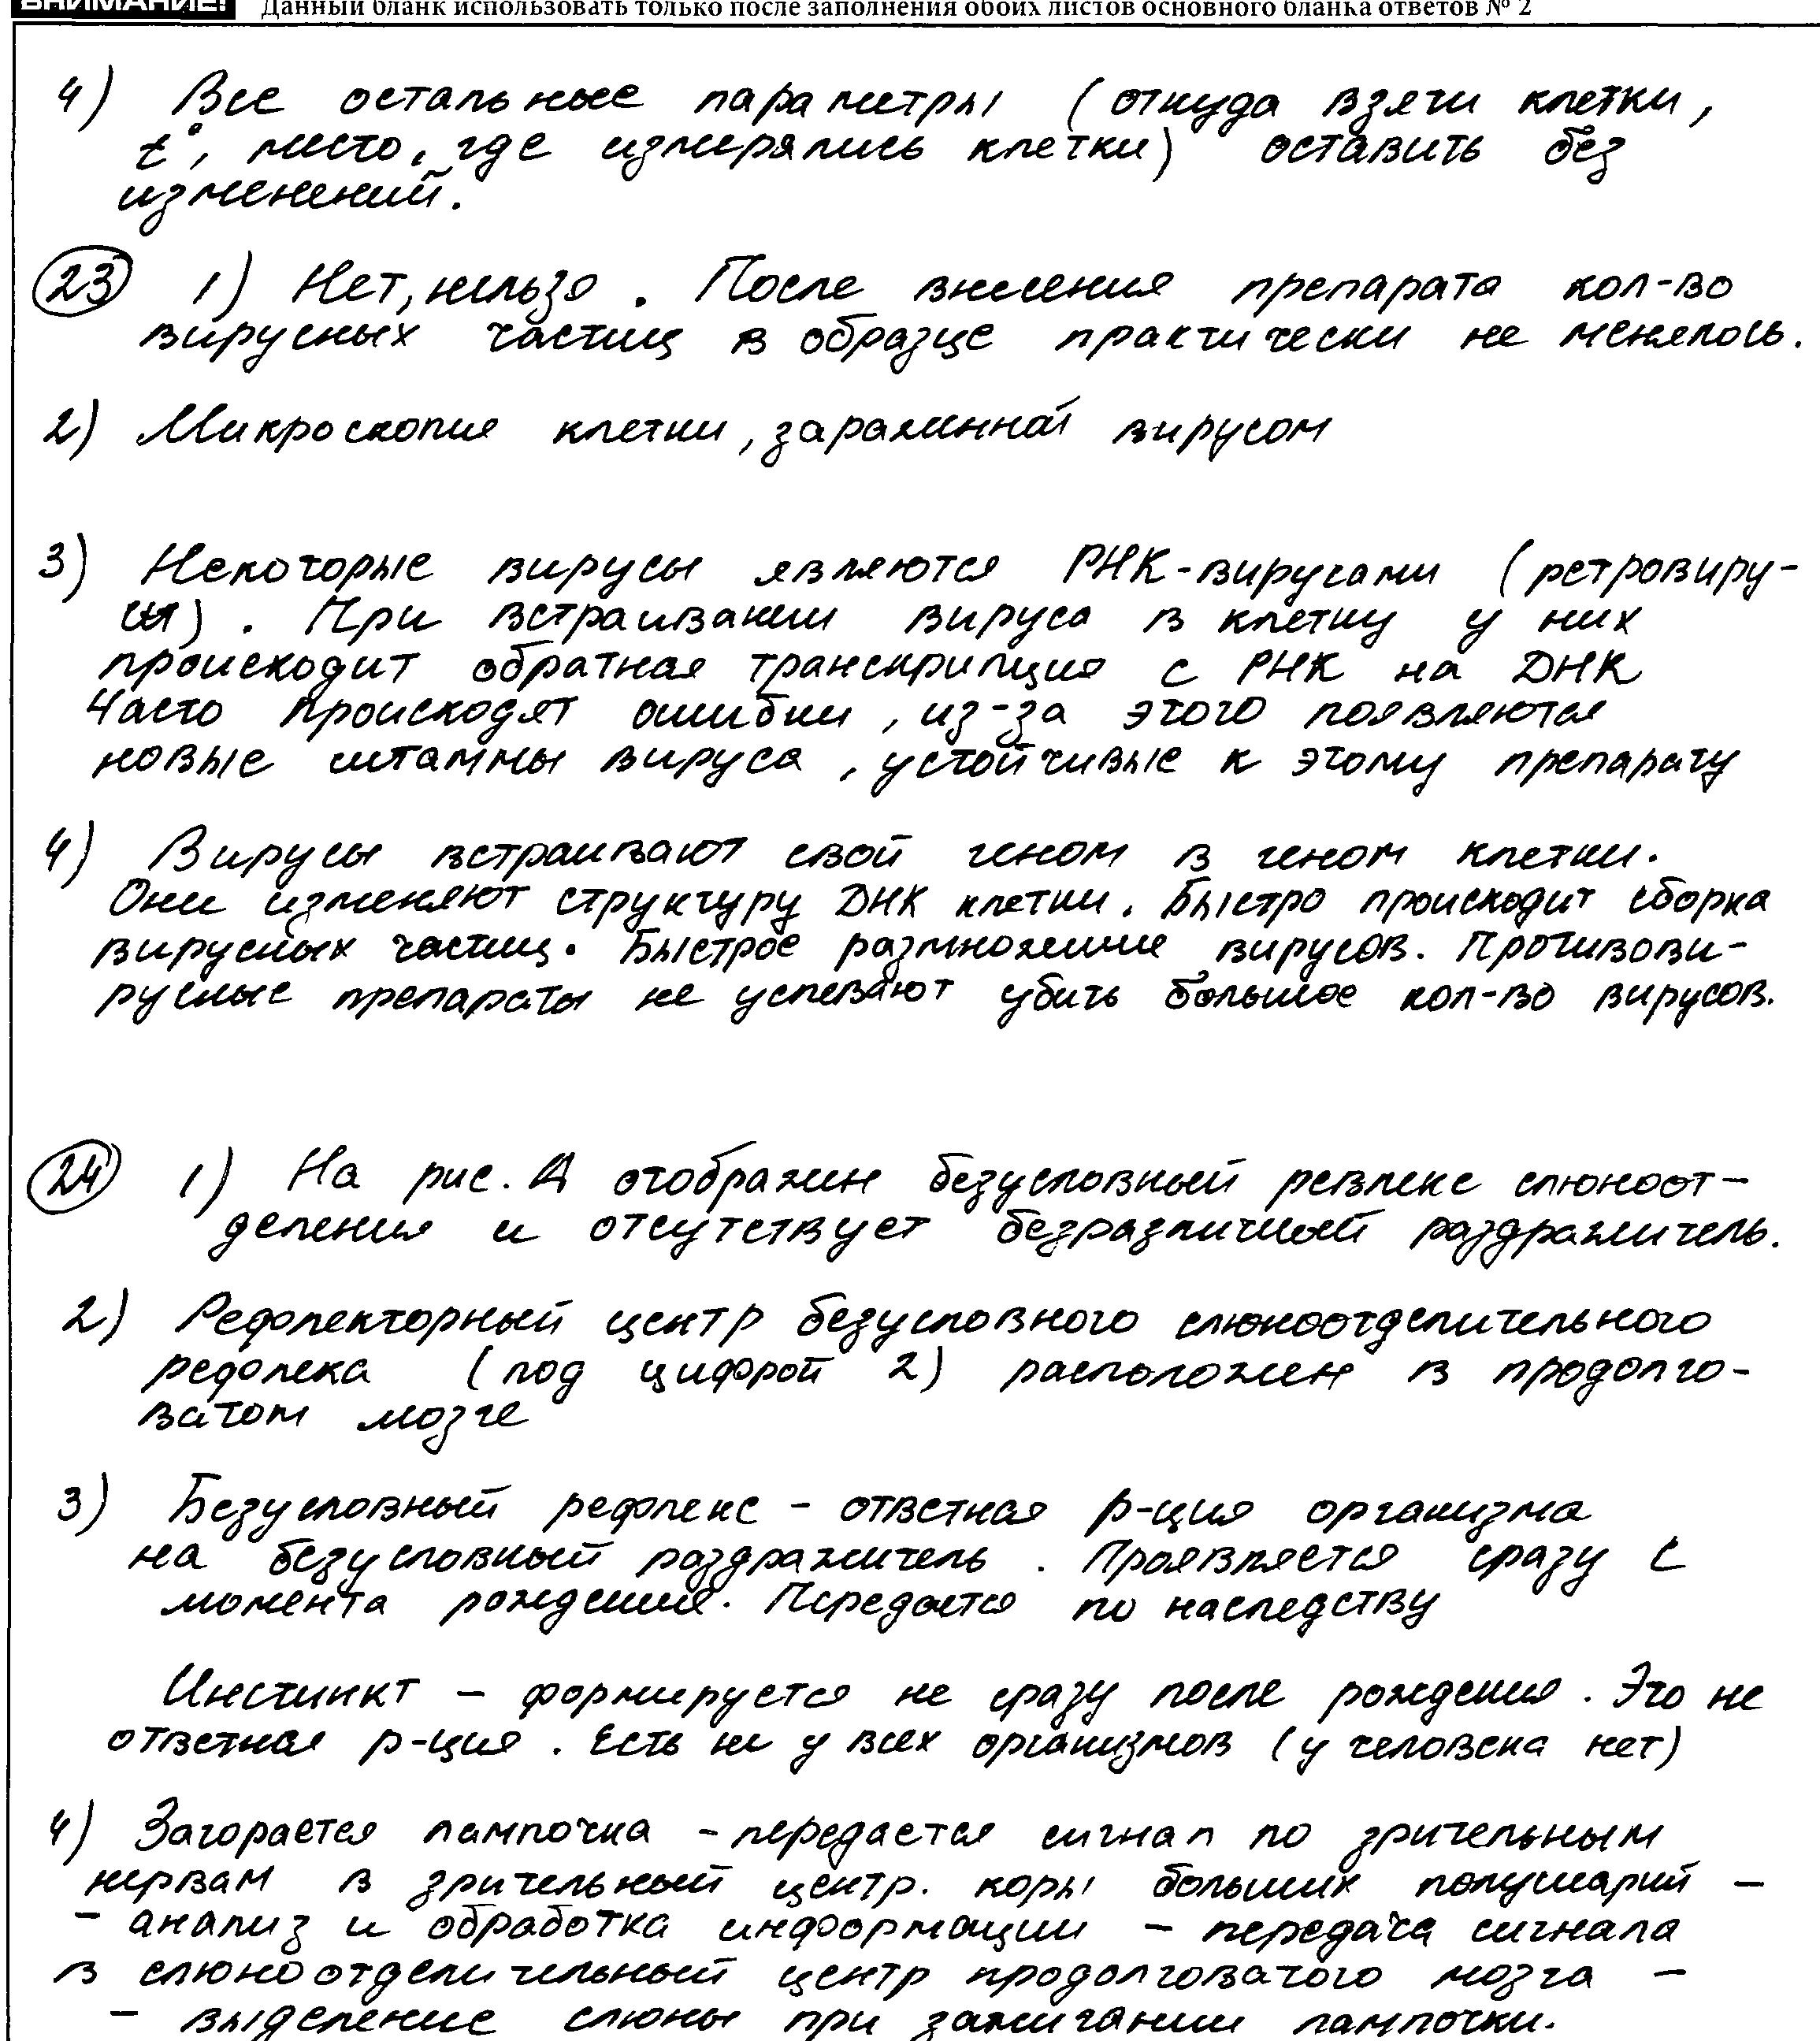 ВНИМАНИЕ! Данный бланк использовать только после заполнения обоих листов основного бланка ответов № 2
4) Все остальные параметры (откуда взяти клетки,
t°, место, где измерялись клетки) оставить без
изменений.
23 1) Нет, нельзя. После внесения препарата кол-во
вирусных частиц в образце практически не менялось.
2) Микроскопия клетки, зараженной вирусом
3) Некоторые вирусы являются РНК-вирусами (ретровиру-
сы). При встраивании вируса в клетку у них
происходит обратная транскрипция с РНК на ДНК
Часто происходят ошибки, из-за этого появляются
новые штаммы вируса, устойчивые к этому препарату
4) Вирусы встраивают свой геном в геном клетки.
Они изменяют структуру ДНК клетки. Быстро происходит сборка
вирусных частиц. Быстрое размножение вирусов. Противови-
русные препараты не успевают убить большое кол-во вирусов.
24 1) На рис. А отображен безусловный рефлекс слюноот-
деления и отсутствует безразличный раздражитель.
2) Рефлекторный центр безусловного слюноотделительного
рефлекса (под цифрой 2) расположен в продолго-
ватом мозге
3) Безусловный рефлекс - ответная р-ция организма
на безусловный раздражитель. Проявляется сразу с
момента рождения. Передается по наследству
Инстинкт - формируется не сразу после рождения. Это не
ответная р-ция. Есть не у всех организмов (у человека нет)
4) Загорается лампочка - передается сигнал по зрительным
нервам в зрительный центр. коры больших полушарий -
- анализ и обработка информации - передача сигнала
в слюноотделительный центр продолговатого мозга -
- выделение слюны при зажигании лампочки.